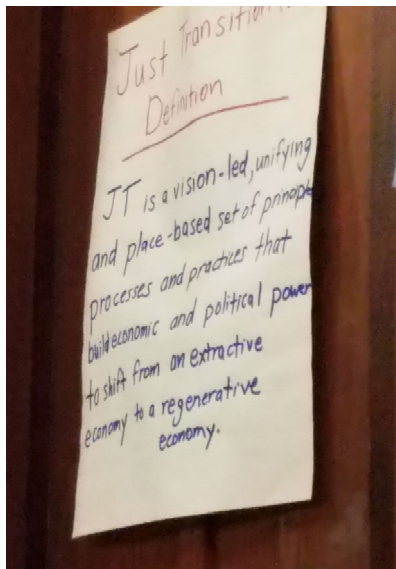 Just Transition
Definition
JT is a vision-led, unifying
and place-based set of principle
processes and practices that
build economic and political power
to shift from an extractive
economy to a regenerative
economy.